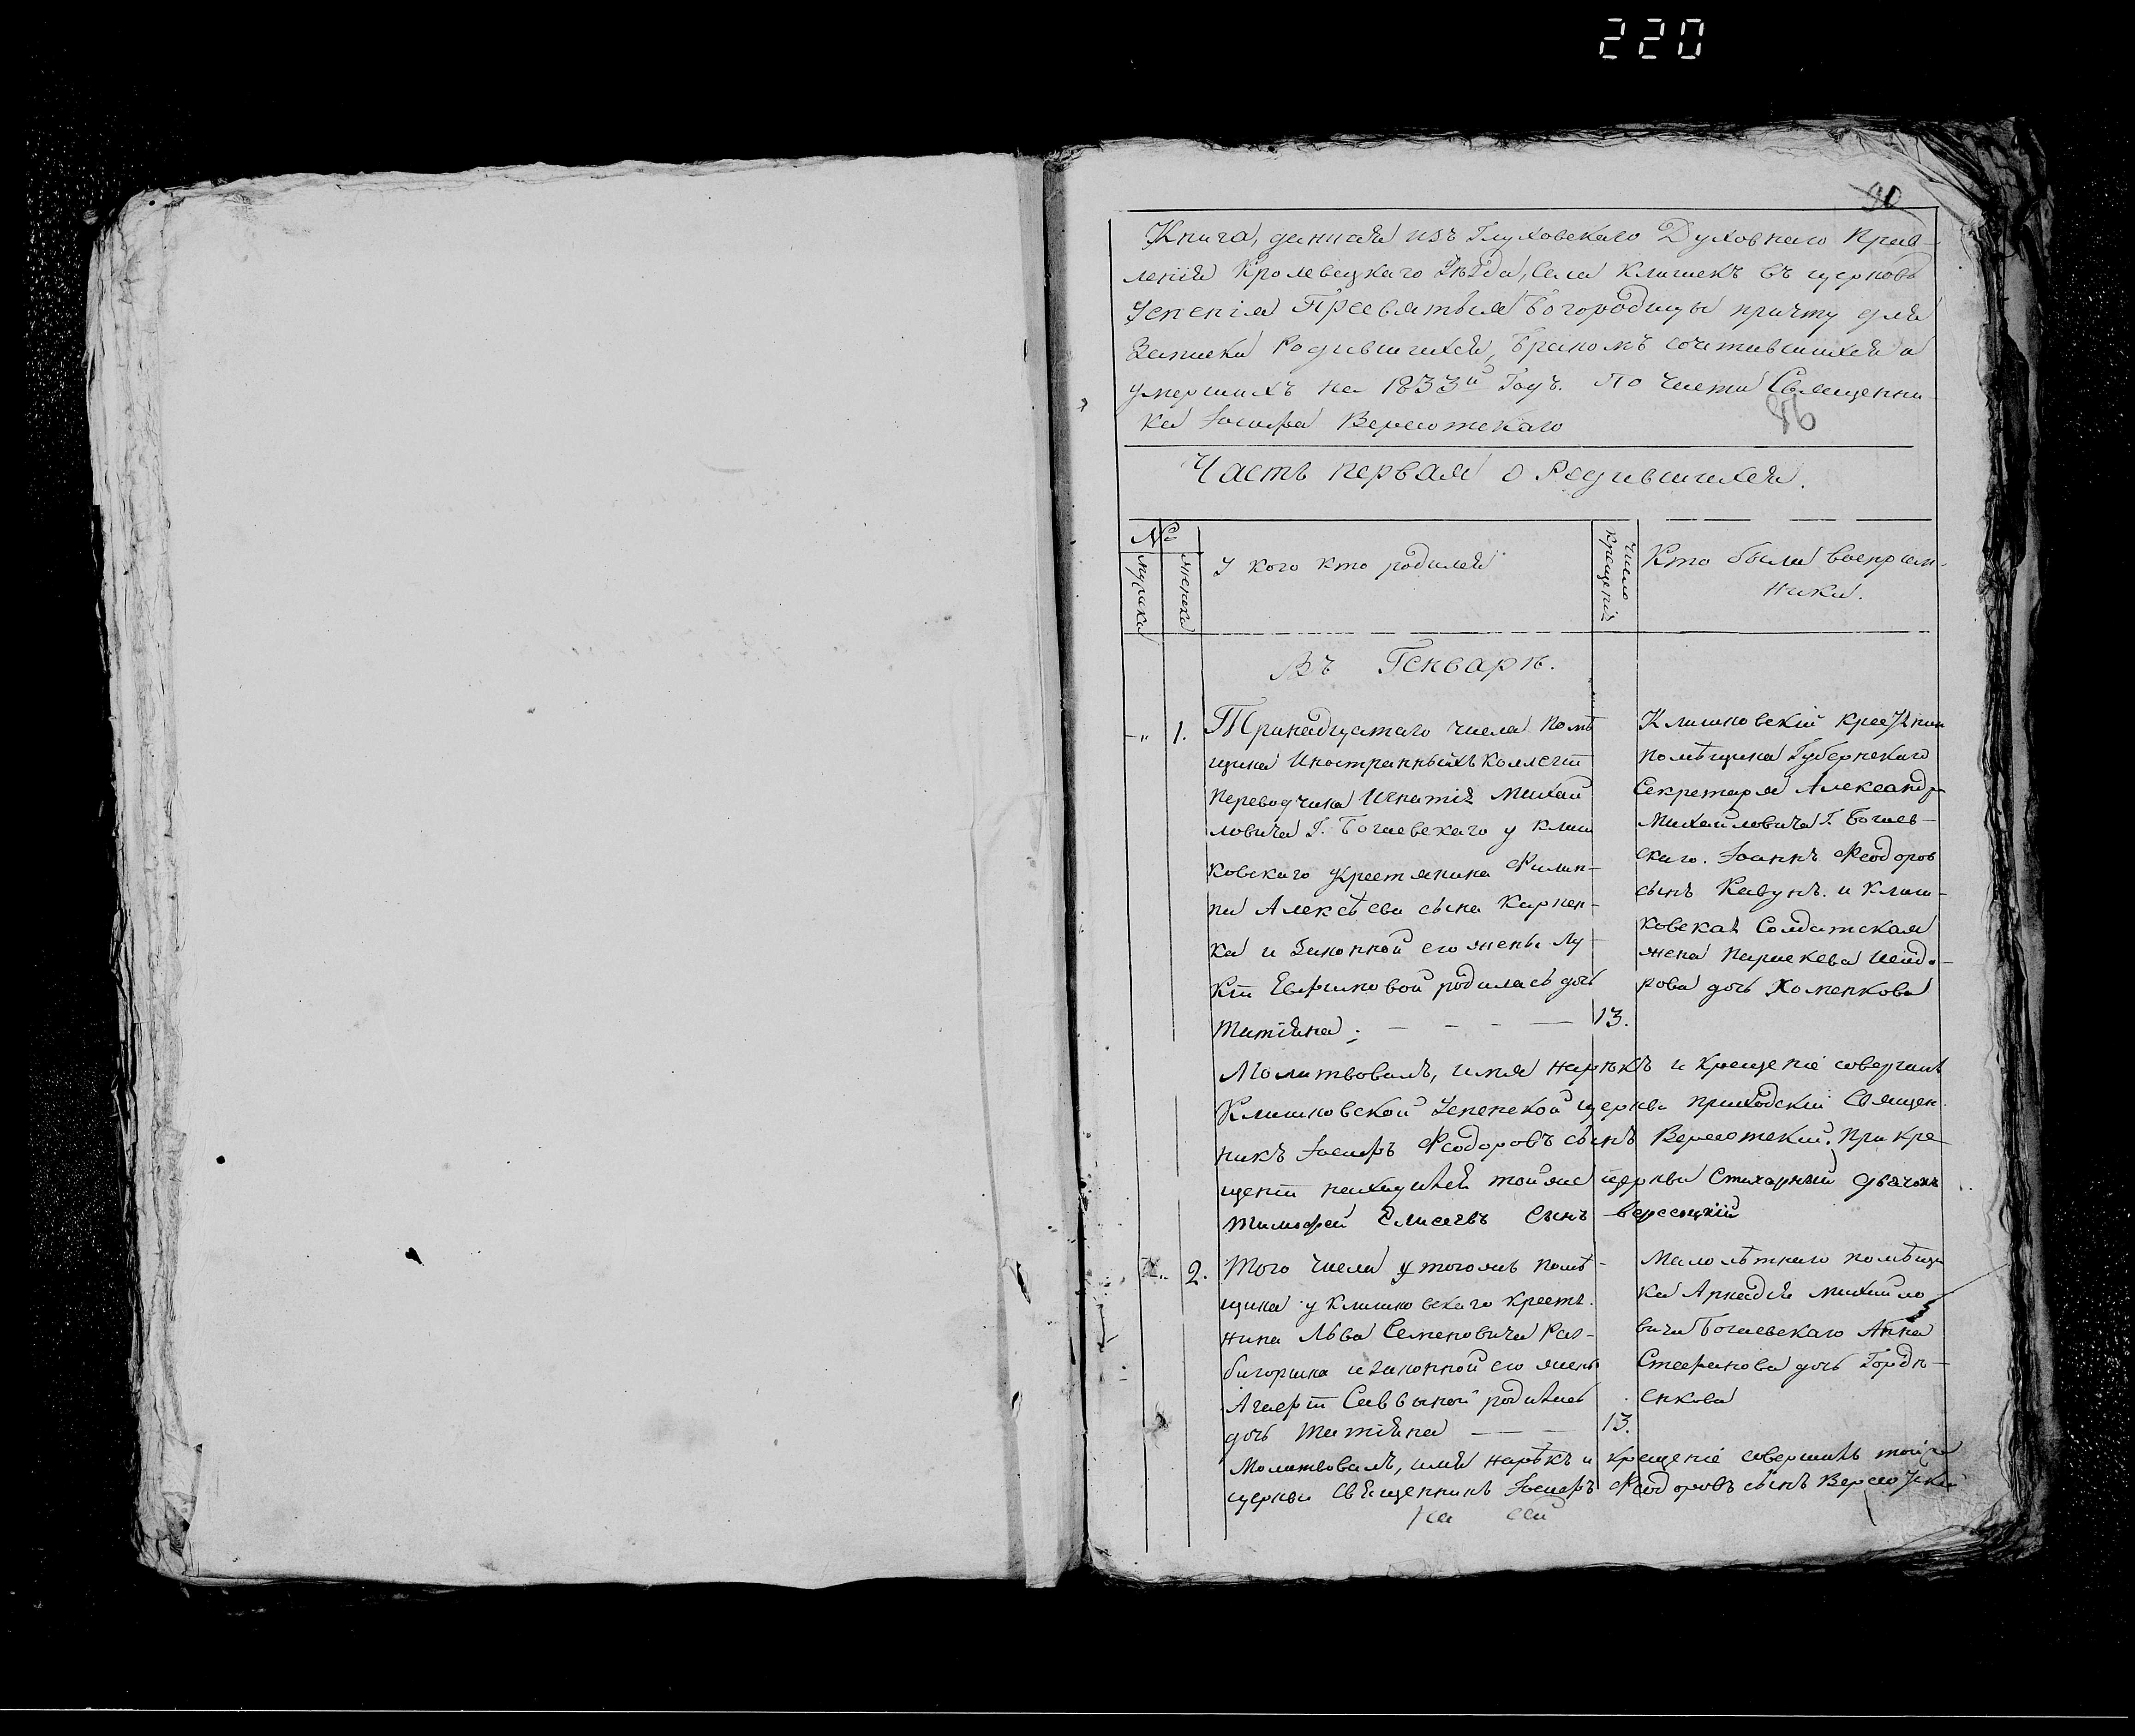 220
90
Книга, данная изъ Глуховскаго Духовнаго Прав-
ленія Кролевецкаго Уѣзда, Села Клишекъ въ церковь
Успенія Пресвятыя Богородицы причту для
Записки Родившихся, Бракомъ сочетавшихся и
умершихъ на 1833й Годъ. По части Священни-
ка Іосифа Вересотскаго
Часть первая о Родившихся.
№
мужска
женска
У кого кто родился
число крещенія
Кто были воспріем-
ники.
Въ Генварѣ.
-" 1. Тринадцатаго числа помѣ
щика Иностранныхъ Коллегіи
переводчика Игнатія Михай
ловича Г. Богаевскаго у Клиш
ковскаго крестянина Филип-
па Алексѣева сына Карпен-
ка и законной его жены Лу-
кіи Евфимовой родилась дочь
Татіяна; 13.
Клишковскій крестянин
помѣщика Губернскаго
Секретаря Александр
Михайловича Г. Богаев-
скаго. Іоаннъ Феодоров
сынъ Кавунъ. и Клиш-
ковская Солдатская
жена Параскева Исидо-
рова дочь Хоменкова
Молитвовалъ, имя нарѣкъ и крещеніе совершилъ
Клишковской Успенской церкви приходскій Священ
никъ Іосифъ Феодоровъ сынъ Вересотскій; При кре-
щеніи находился тойже церкви Стихарный Дьячокъ
Тимофей Елисеевъ Сынъ Вересоцкій
2. Того числа у тогожъ помѣ-
щика у Клишковскаго крестя.
нина Льва Семеновича Раз-
бигоршка и законной его жены
Агафіи Саввиной родилась
дочь Татіяна 13.
Малолѣтнаго помѣщи
ка Аркадія Михайло
вича Богаевскаго Анна
Стефанова дочь Гордѣ-
енкова
Молитвовалъ, имя нарѣкъ и крещеніе совершилъ тойже
церкви Священникъ Іосифъ Феодоровъ сынъ Вересотскій